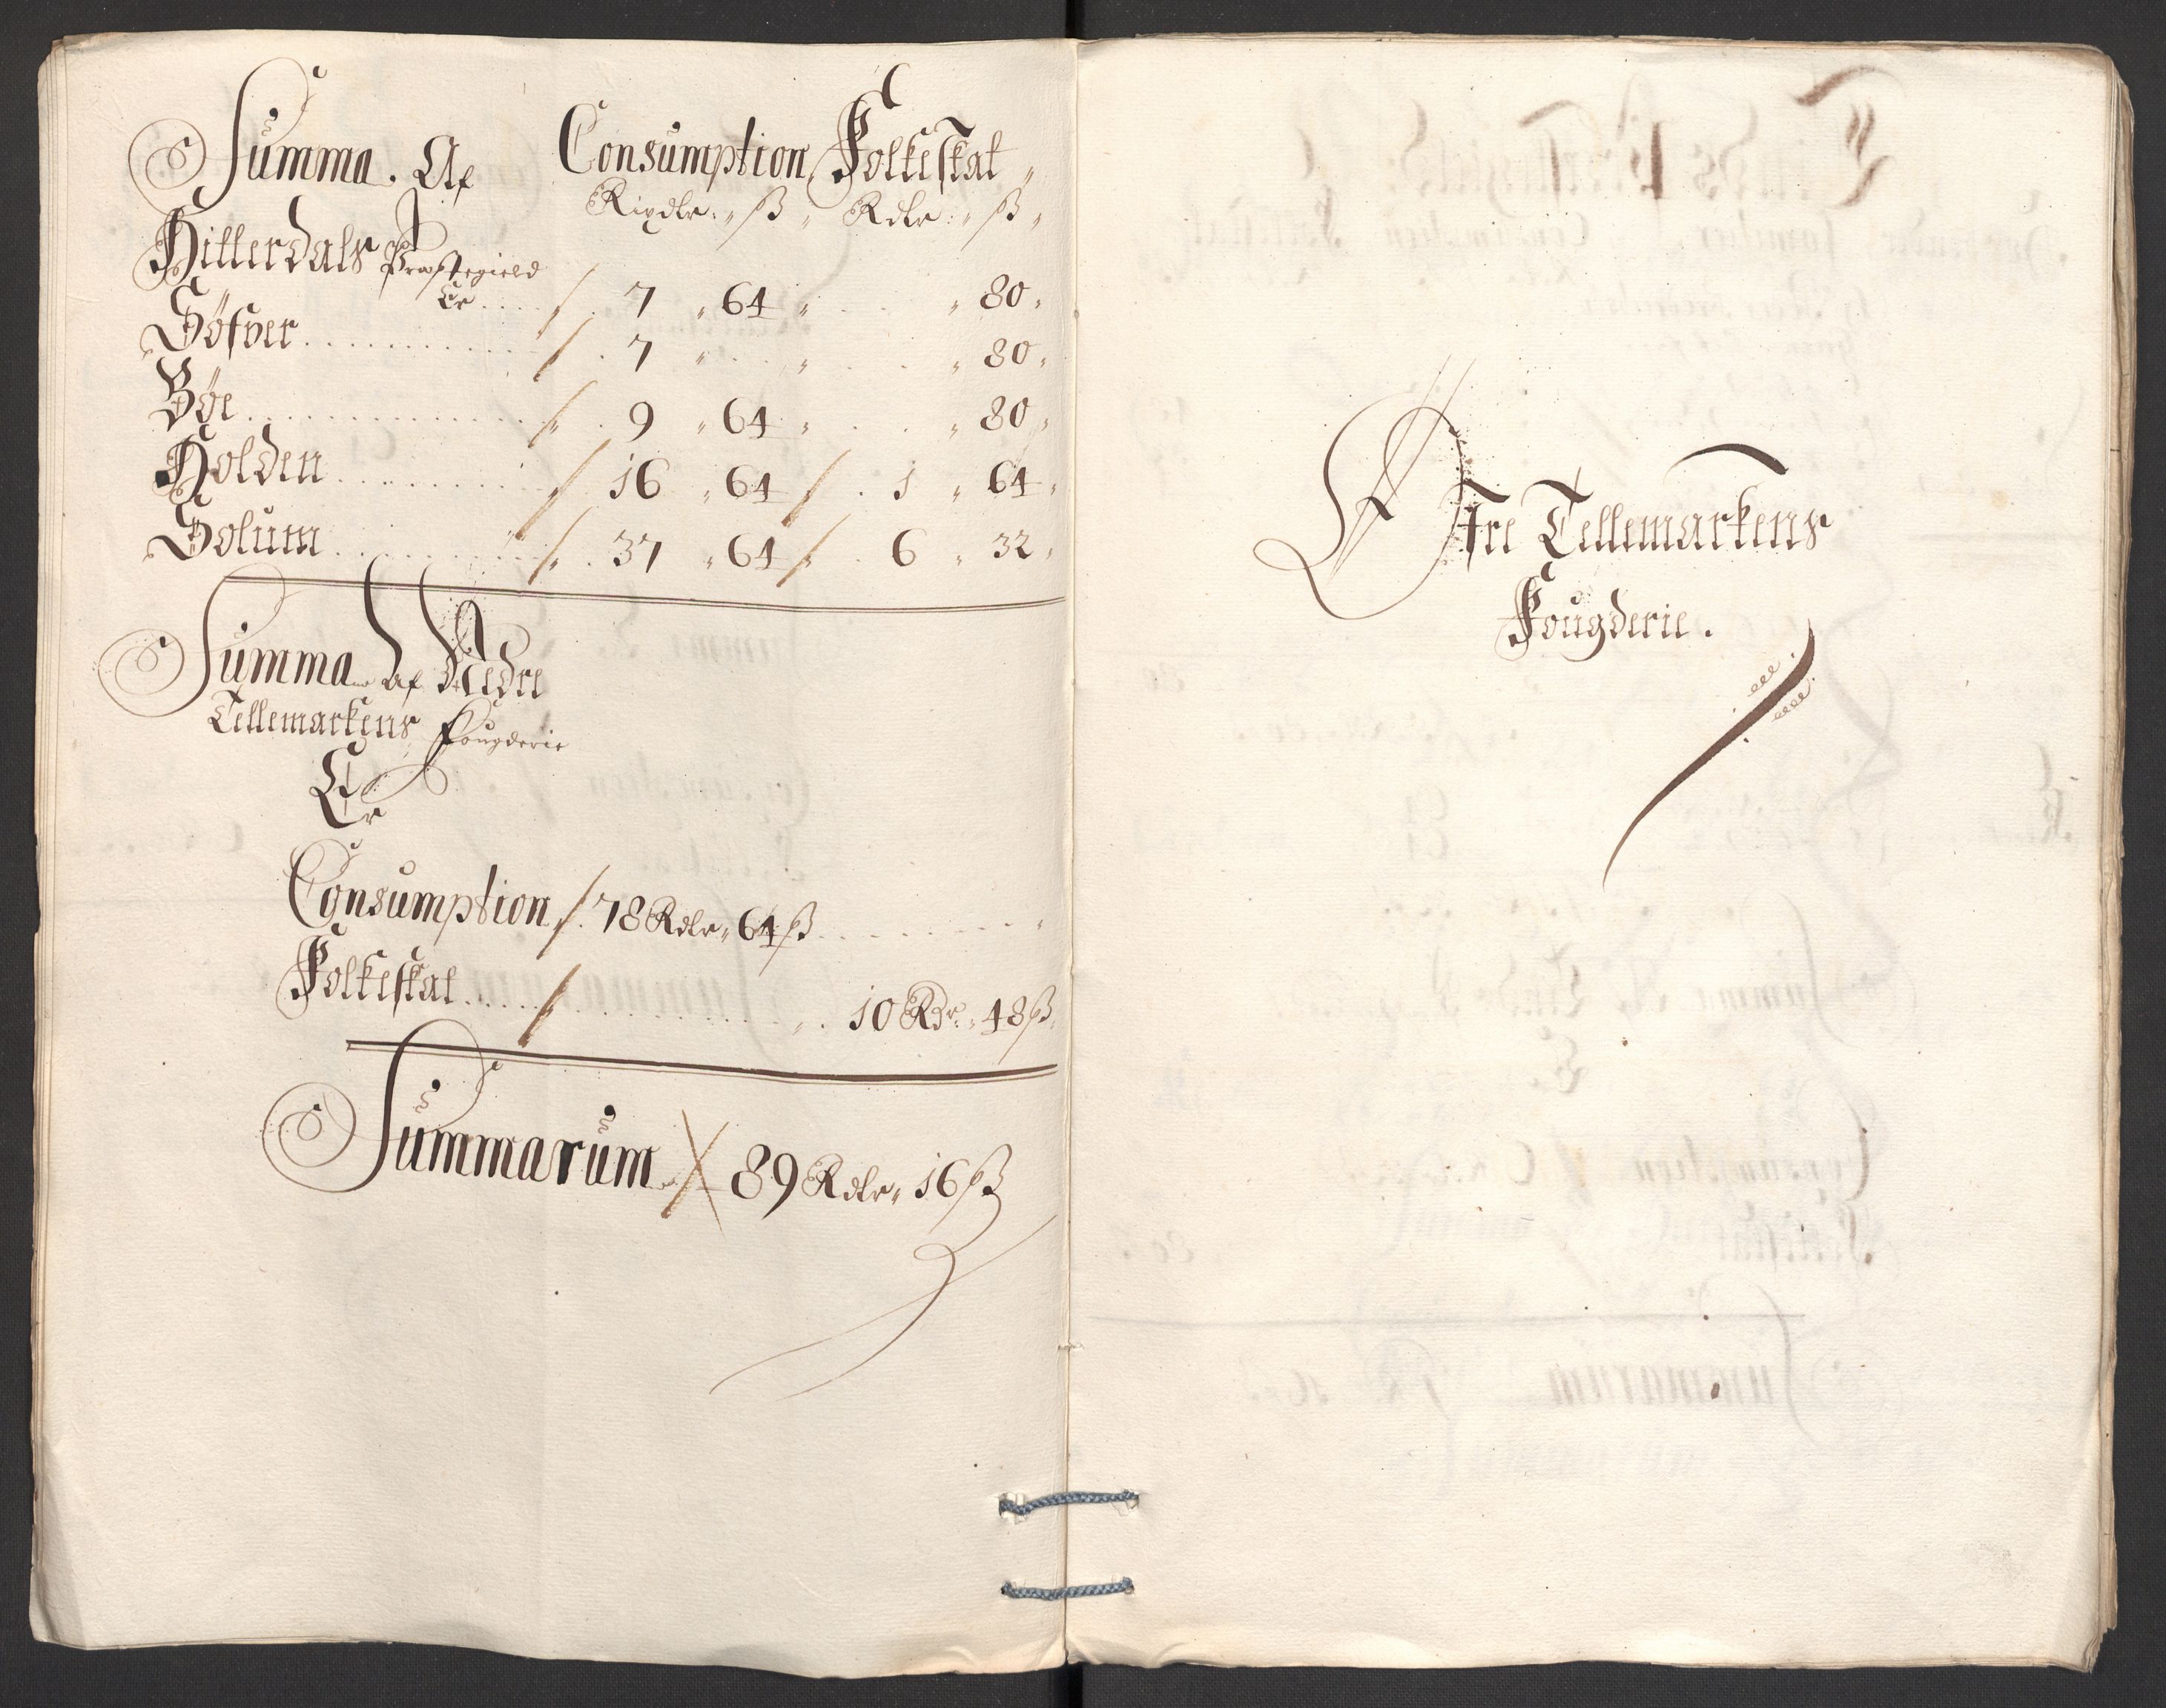 Summa. Af Consumption Folkeskat
Rixdlr. ß Rdlr. ß
Hitterdals Præstegield
Er 7 64 80
Söfver 7 80
Böe 9 64 80
Holden 16 64 1 64
Solum 37 64 6 32
Summa Af Nedre
Tellemarkens Fougderie
Er
Consumption 78 Rdlr 64 ß
Folkeskat 10 Rdr. 48 ß
Summarum 89 Rdlr 16 ß
Öfre Tellemarkens
Fougderie.